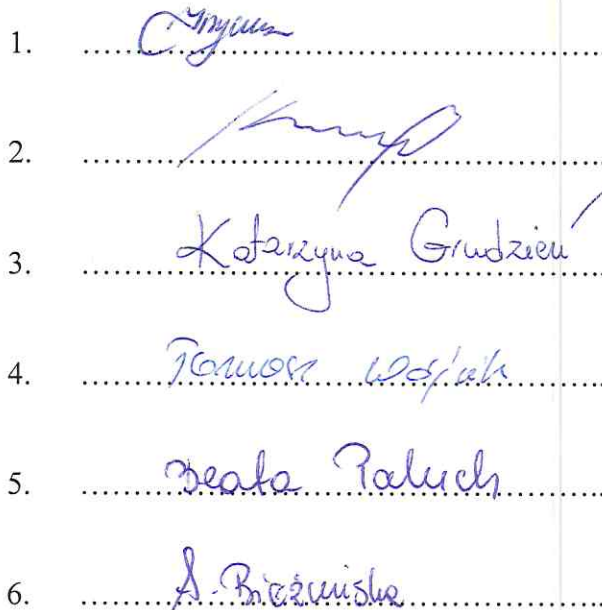 1. ....................
2. ....................
3. Katarzyna Grudzień
4. Tomasz Wójcik
5. Beata Paluch
6. A. Bieżuńska